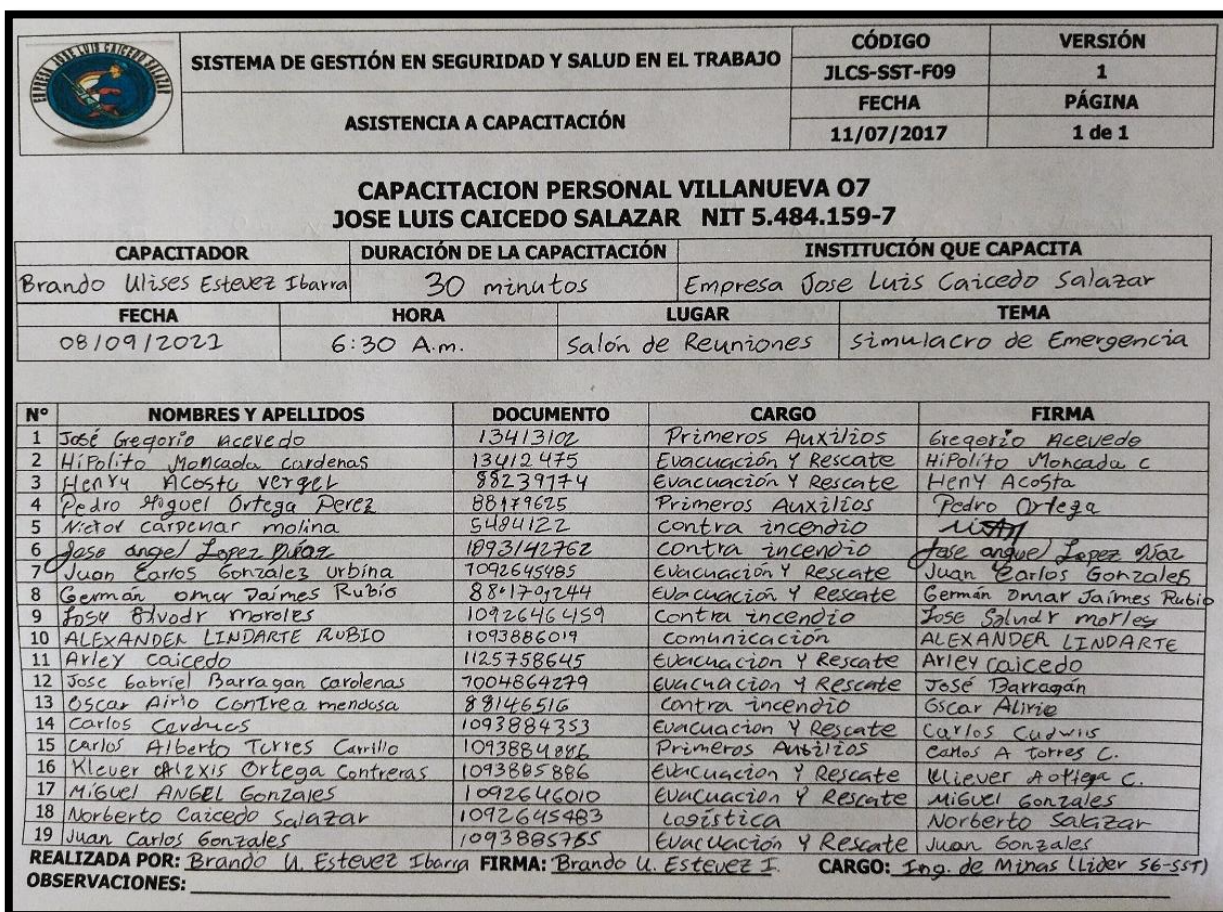 EMPRESA JOSE LUIS CAICEDO SALAZAR
SISTEMA DE GESTIÓN EN SEGURIDAD Y SALUD EN EL TRABAJO
CÓDIGO VERSIÓN
JLCS-SST-F09 1
ASISTENCIA A CAPACITACIÓN
FECHA PÁGINA
11/07/2017 1 de 1
CAPACITACION PERSONAL VILLANUEVA O7
JOSE LUIS CAICEDO SALAZAR NIT 5.484.159-7
CAPACITADOR DURACIÓN DE LA CAPACITACIÓN INSTITUCIÓN QUE CAPACITA
Brando Ulises Estevez Ibarra 30 minutos Empresa Jose Luis Caicedo Salazar
FECHA HORA LUGAR TEMA
08/09/2021 6:30 A.m. Salón de Reuniones Simulacro de Emergencia
N° NOMBRES Y APELLIDOS DOCUMENTO CARGO FIRMA
1 José Gregorio Acevedo 13413102 Primeros Auxilios Gregorio Acevedo
2 HiPolito Moncada cardenas 13412475 Evacuación Y Rescate HiPolito Moncada C
3 Henry Acosta verger 88239174 Evacuación Y Rescate HenY Acosta
4 Pedro Miguel Ortega Perez 88179625 Primeros Auxilios Pedro Ortega
5 molina 5484122 contra incendio
6 Jose angel Lopez Díaz 1093142762 contra incendio Jose anguel Lopez Díaz
7 Juan Carlos Gonzalez urbina 1092645985 Evacuación Y Rescate Juan Carlos Gonzales
8 Germán omar Jaimes Rubio 88170,244 Evacuación Y Rescate Germán Omar Jaimes Rubio
9 Jose moroles 1092646459 contra incendio Jose
10 ALEXANDER LINDARTE RUBIO 1093886019 comunicación ALEXANDER LINDARTE
11 Arley caicedo 1125758645 Evacuacion Y Rescate Arley caicedo
12 Jose Gabriel Barragan Cardenas 7004864279 Evacuacion Y Rescate José Barragán
13 Oscar Airio Contrea mendosa 88146516 contra incendio Oscar Alirio
14 Carlos 1093884353 Evacuacion Y Rescate Carlos
15 Carlos Alberto Torres Carrillo 1093884886 Primeros Auxilios Carlos A torres C.
16 Klever Alexis Ortega Contreras 1093885886 Evacuacion Y Rescate Kliever C.
17 MiGuel ANGEL Gonzales 1092646010 Evacuacion Y Rescate MiGuel Gonzales
18 Norberto Caicedo Salazar 1092645483 Logística Norberto Salazar
19 Juan Carlos Gonzales 1093885765 Evacuación Y Rescate Juan Gonzales
REALIZADA POR: Brando U. Estevez Ibarra FIRMA: Brando U. Estevez I. CARGO: Ing. de Minas (Lider SG-SST)
OBSERVACIONES: